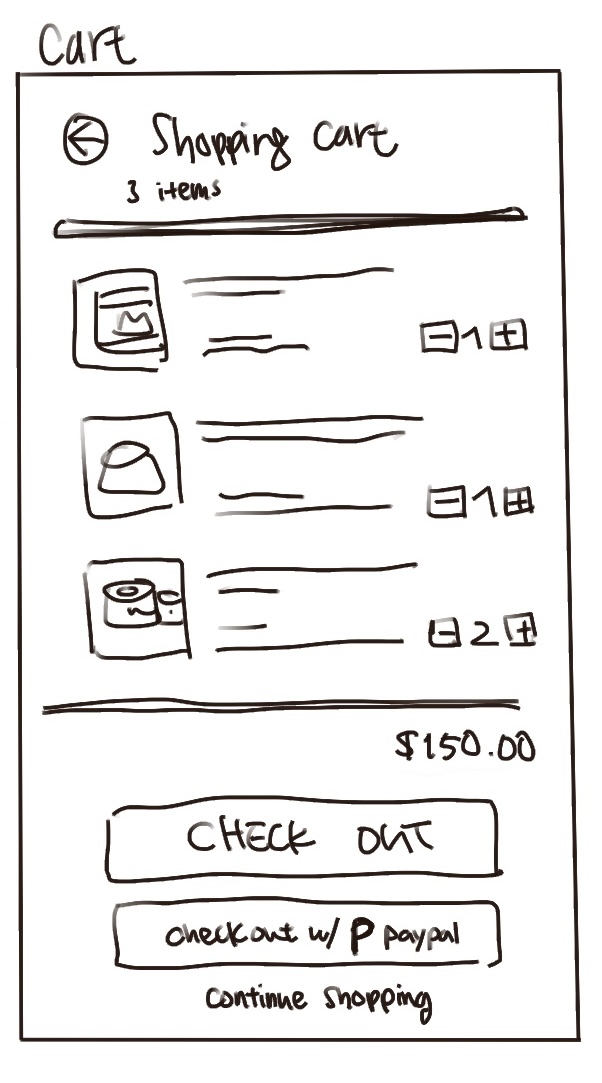 Cart
Shopping Cart
3 items
- 1 +
- 1 +
- 2 +
$150.00
CHECK OUT
checkout w/ P paypal
continue shopping